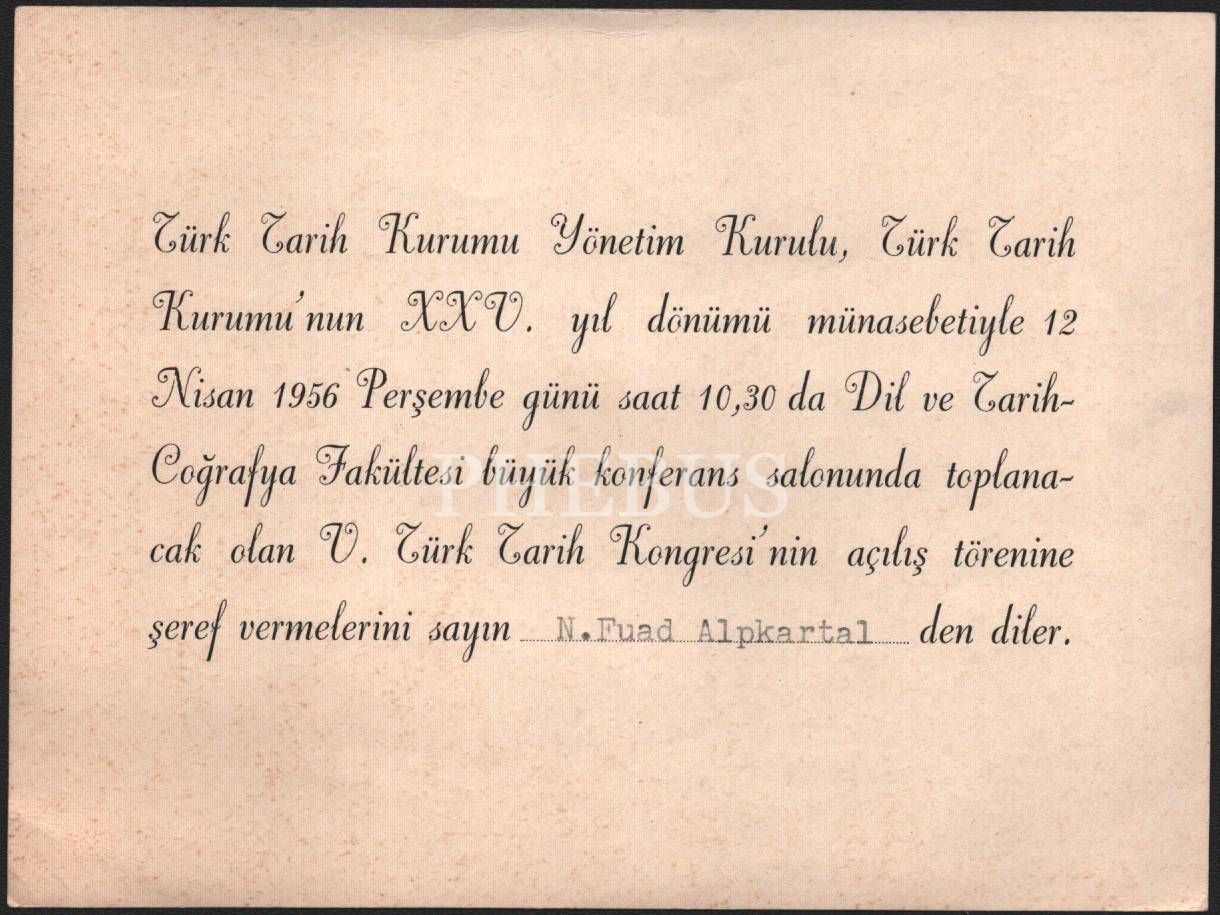 Türk Tarih Kurumu Yönetim Kurulu, Türk Tarih
Kurumu'nun XXV. yıl dönümü münasebetiyle 12
Nisan 1956 Perşembe günü saat 10,30 da Dil ve Tarih-
Coğrafya Fakültesi büyük konferans salonunda toplana-
cak olan V. Türk Tarih Kongresi'nin açılış törenine
şeref vermelerini sayın N.Fuad Alpkartal den diler.
PHEBUS